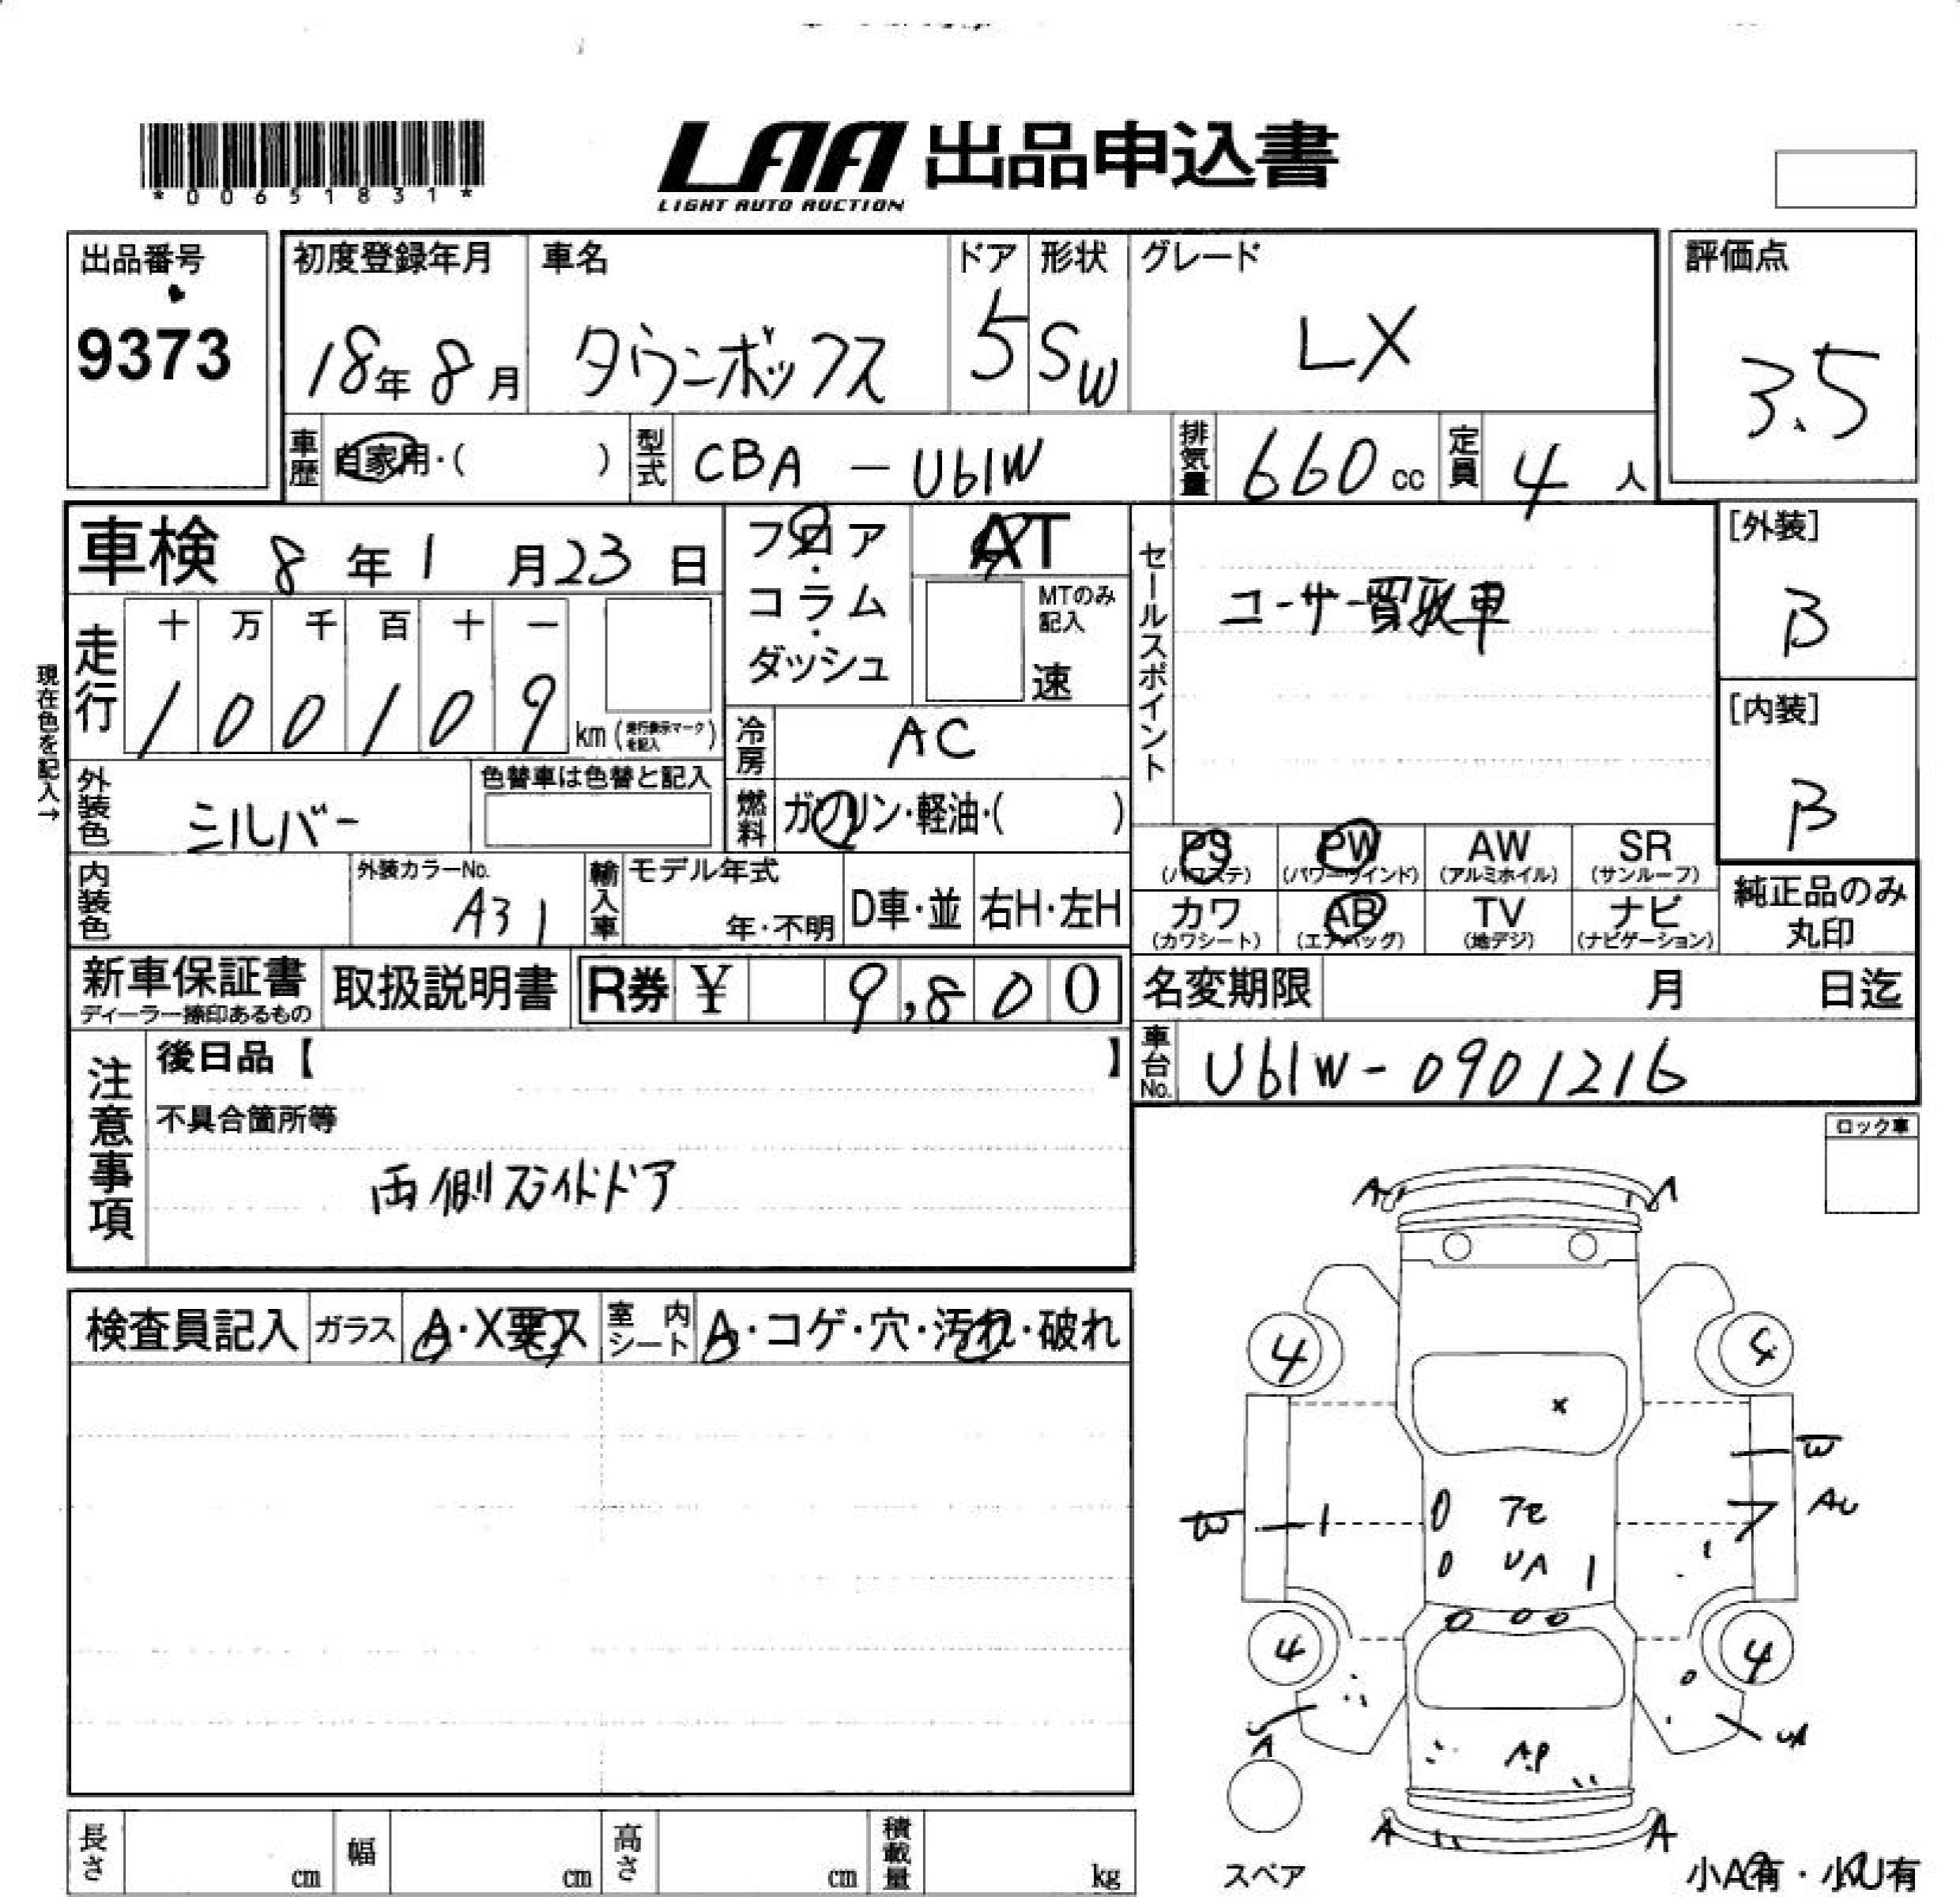 *00651831*
LAA 出品申込書
LIGHT AUTO AUCTION
出品番号
9373
初度登録年月
18年8月
車名
タウンボックス
ドア
5
形状
SW
グレード
LX
評価点
3.5
車歴 自家用・( )
型式 CBA - U61W
排気量 660 cc
定員 4 人
車検 8年1月23日
フロア・コラム・ダッシュ
AT
MTのみ記入
速
セールスポイント
ユーザー買取車
[外装]
B
[内装]
B
現在色を記入→
走行
十 万 千 百 十 一
1 0 0 1 0 9 km (走行表示マークを記入)
冷房 AC
外装色 シルバー
色替車は色替と記入
燃料 ガソリン・軽油・( )
PS (パワステ)
PW (パワーウインド)
AW (アルミホイル)
SR (サンルーフ)
内装色
外装カラーNo.
A31
輸入車
モデル年式
年・不明
D車・並
右H・左H
カワ (カワシート)
AB (エアバッグ)
TV (地デジ)
ナビ (ナビゲーション)
純正品のみ丸印
新車保証書
ディーラー捺印あるもの
取扱説明書
R券 ¥ 9,800
名変期限 月 日迄
車台No. U61W-0901216
注意事項
後日品【 】
不具合箇所等
両側スライドドア
ロック車
検査員記入
ガラス A・X要ス
室内シート A・コゲ・穴・汚れ・破れ
A A
4 4
X
W W
AU
アセ
UA
4 4
UA
AP
A
A A
スペア
小A有・小U有
長さ cm
幅 cm
高さ cm
積載量 kg